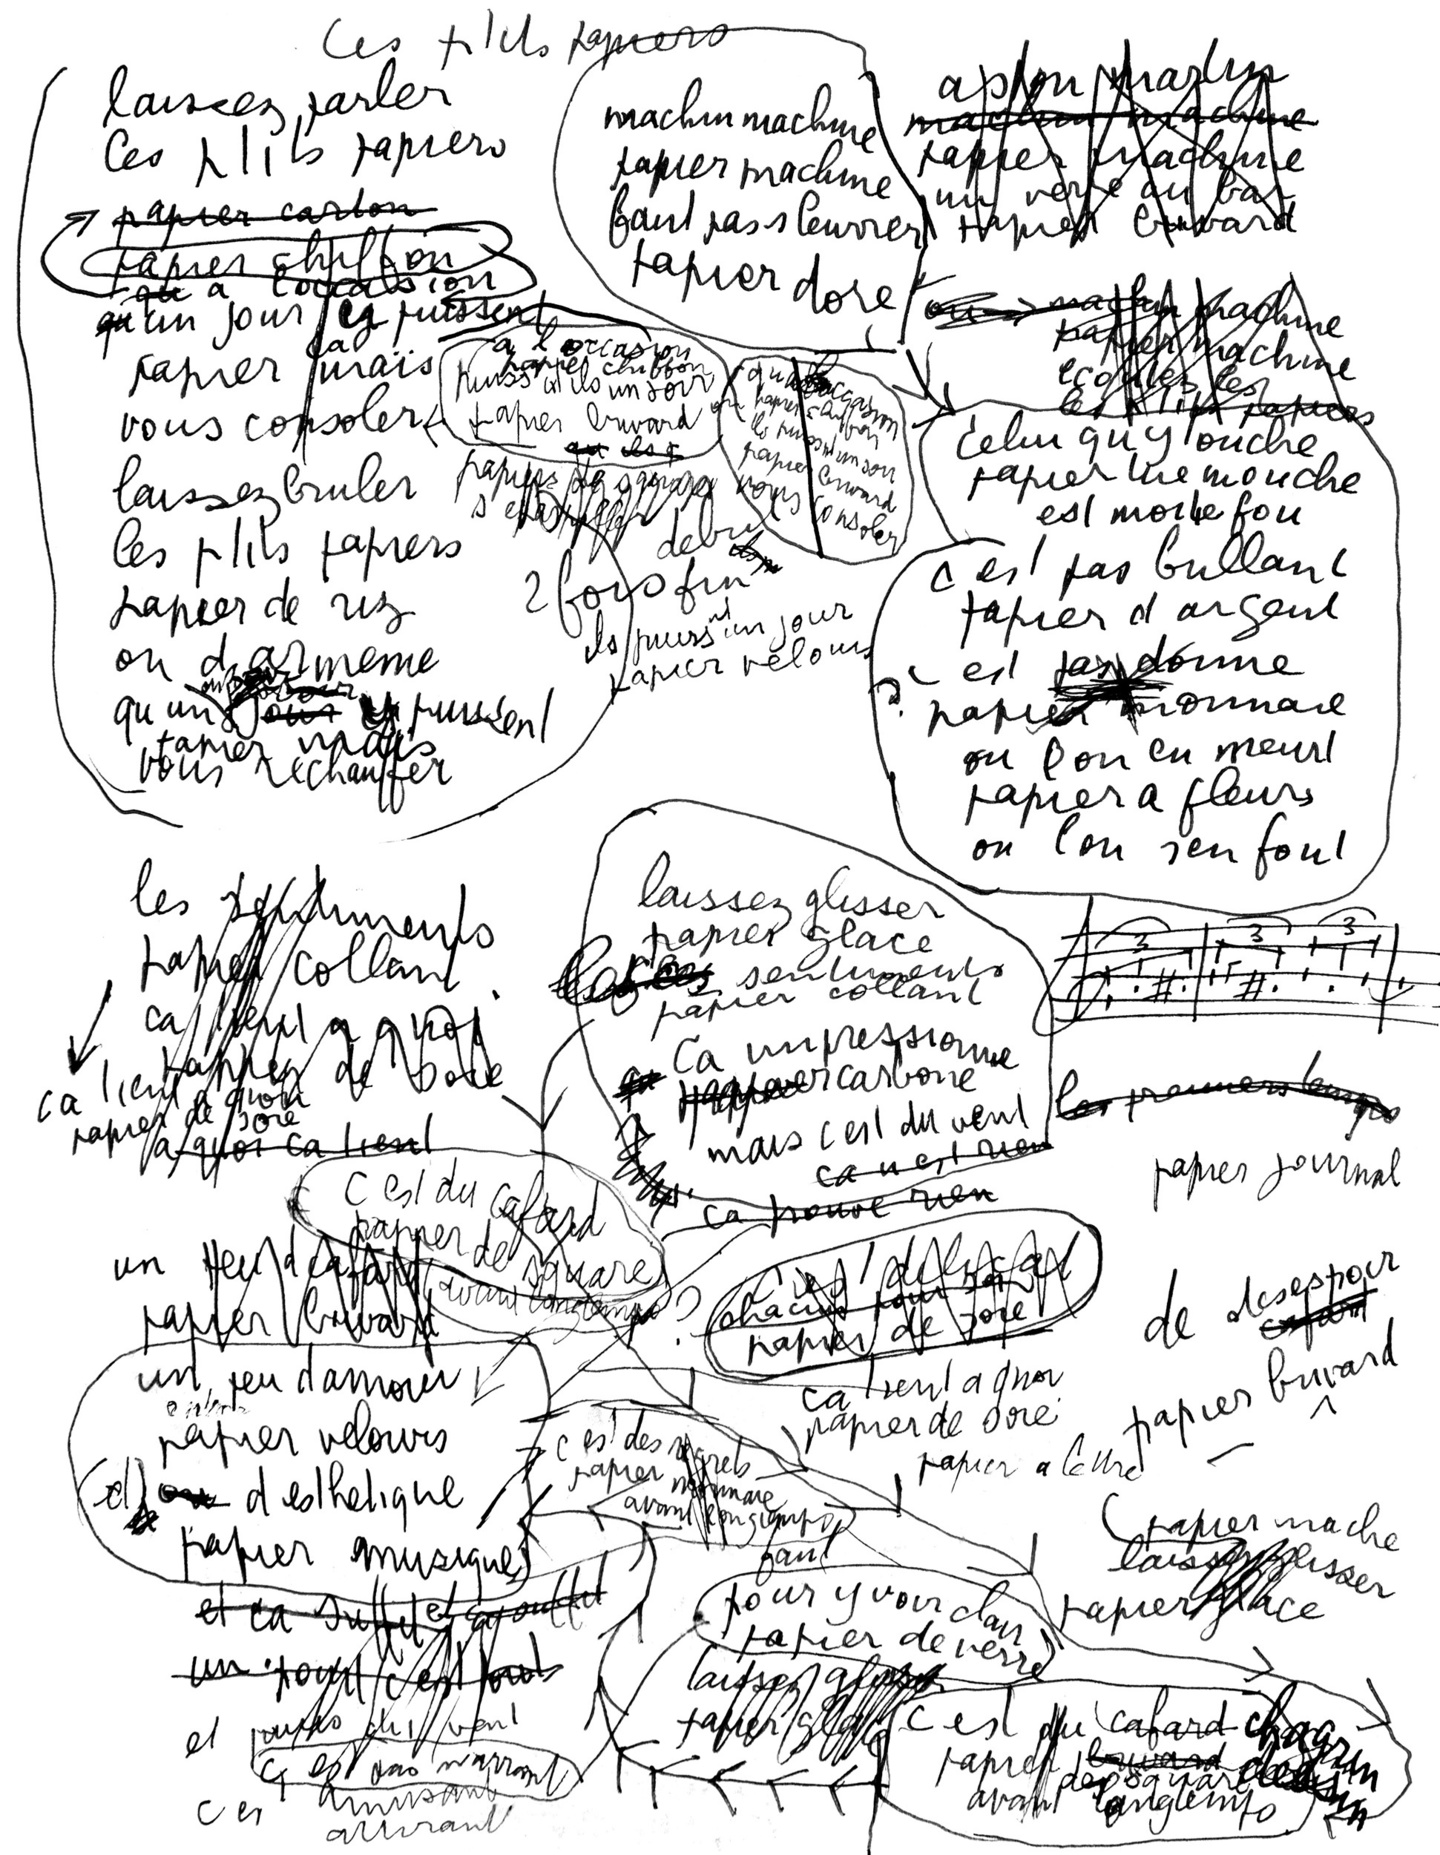 Ces p'tits papiers
laissez parler
les p'tits papiers
papier carton
papier chiffon
a l'occasion
qu'un jour puissent
papier maïs
vous consoler
laissez bruler
les p'tits papiers
papier de riz
ou d armenie
qu un jour puissent
papier maïs
vous rechauffer
machin machine
papier machine
faut pas s leurrer
papier doré
machin machine
papier machine
un verre au bar
papier buvard
ou machin machine
papier machine
ecoutez les
les p'tits papiers
a l'occasion
papier chiffon
puiss' ils un soir
papier buvard
papiers de
s
l'occasion
papier chiffon
ils puiss un soir
papier buvard
vous consoler
debut
2 fois fin
ils puiss'nt un jour
papier velours
Celui qu y touche
papier tue mouche
est moitié fou
c'est pas brillant
papier d argent
c est pas donné
papier monnaie
ou l'on en meurt
papier a fleurs
ou l'on s'en fout
les sentiments
papier collant
ca tient a quoi
papier de soie
ca tient a quoi
papier de soie
a quoi ca tient
laissez glisser
papier glacé
les sentiments
papier collant
Ca impressionne
papier carbone
mais c'est du vent
ca n est rien
ca prouve rien
3 3 3
les premiers temps
papier journal
c'est du cafard
papier de square
avant longtemps ?
un peu d cafard
papier buvard
un peu d'amour
papier velours
d esthetique
papier musique
et ca suffit
un point c'est tout
et
c'est pas marrant
c es
amusant
chacun pour soi
papier de soie
ca tient a quoi
papier de soie
papier a lettre
de desespoir
cafard
papier buvard
c'est des regrets
papier monnaie
avant longtemps
faut
pour y voir clair
papier de verre
laissez glisser
papier glacé
papier maché
laissez glisser
papier glace
c est du cafard chagrin
papier buvard
de square
avant longtemps